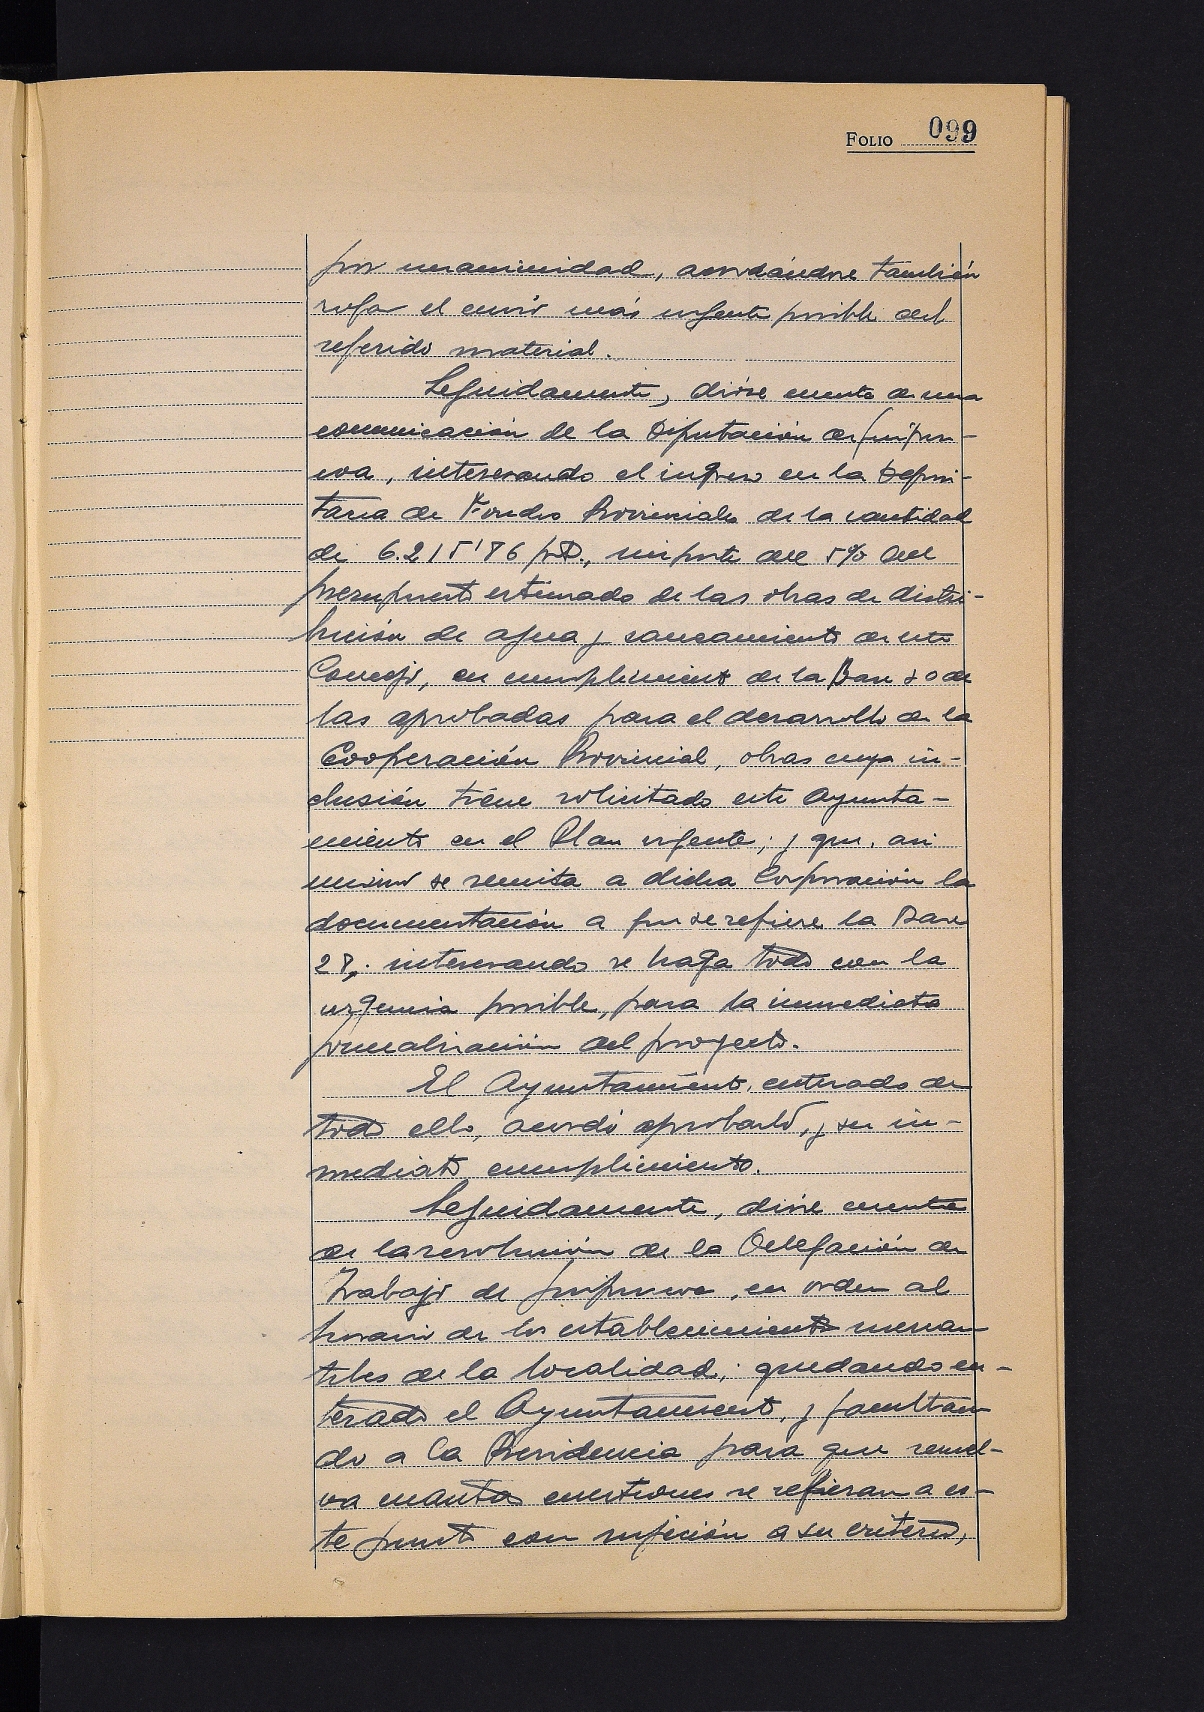 FOLIO 099
por unanimidad, acordándose también
rogar el envío más urgente posible del
referido material.
Seguidamente, dióse cuenta de una
comunicación de la Diputación de Guipúz-
coa, interesando el ingreso en la Deposi-
taria de Fondos Provinciales de la cantidad
de pts., importe del 5% del
presupuesto estimado de las obras de distri-
bución de agua y saneamiento de este
Concejo, en cumplimiento de la Base de
las aprobadas para el desarrollo de la
Cooperación Provincial, obras cuya in-
clusión tiene solicitado este Ayunta-
miento en el Plan urgente; y que, asi
mismo se remita a dicha Corporación la
documentación a que se refiere la Base
interesando se haga todo con la
urgencia posible, para la inmediata
formalización del proyecto.
El Ayuntamiento, enterado de
todo ello, acordó aprobarlo, y su in-
mediato cumplimiento.
Seguidamente, dióse cuenta
de la resolución de la Delegación de
Trabajo de Guipúzcoa, en orden al
horario de los establecimientos mercan-
tiles de la localidad; quedando en-
terado el Ayuntamiento, y facultan-
do a la Presidencia para que resuel-
va cuantas cuestiones se refieran a es-
te punto con sujeción a su criterio,